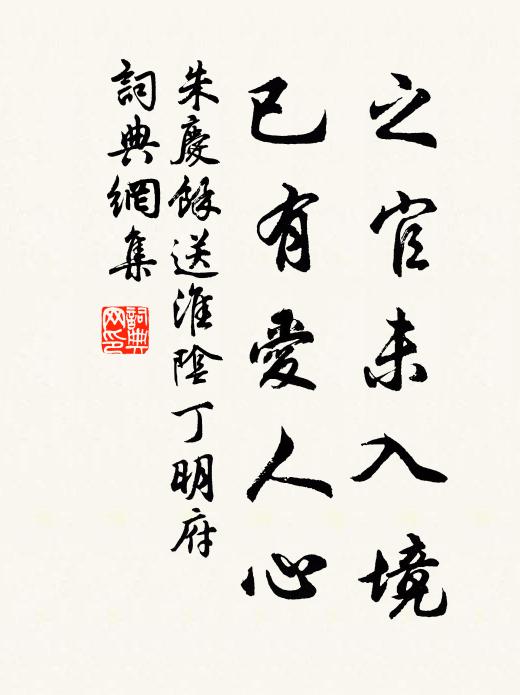 之官未入境
已有愛人心
朱慶餘送淮陰丁明府
詞典網集
詞典网印